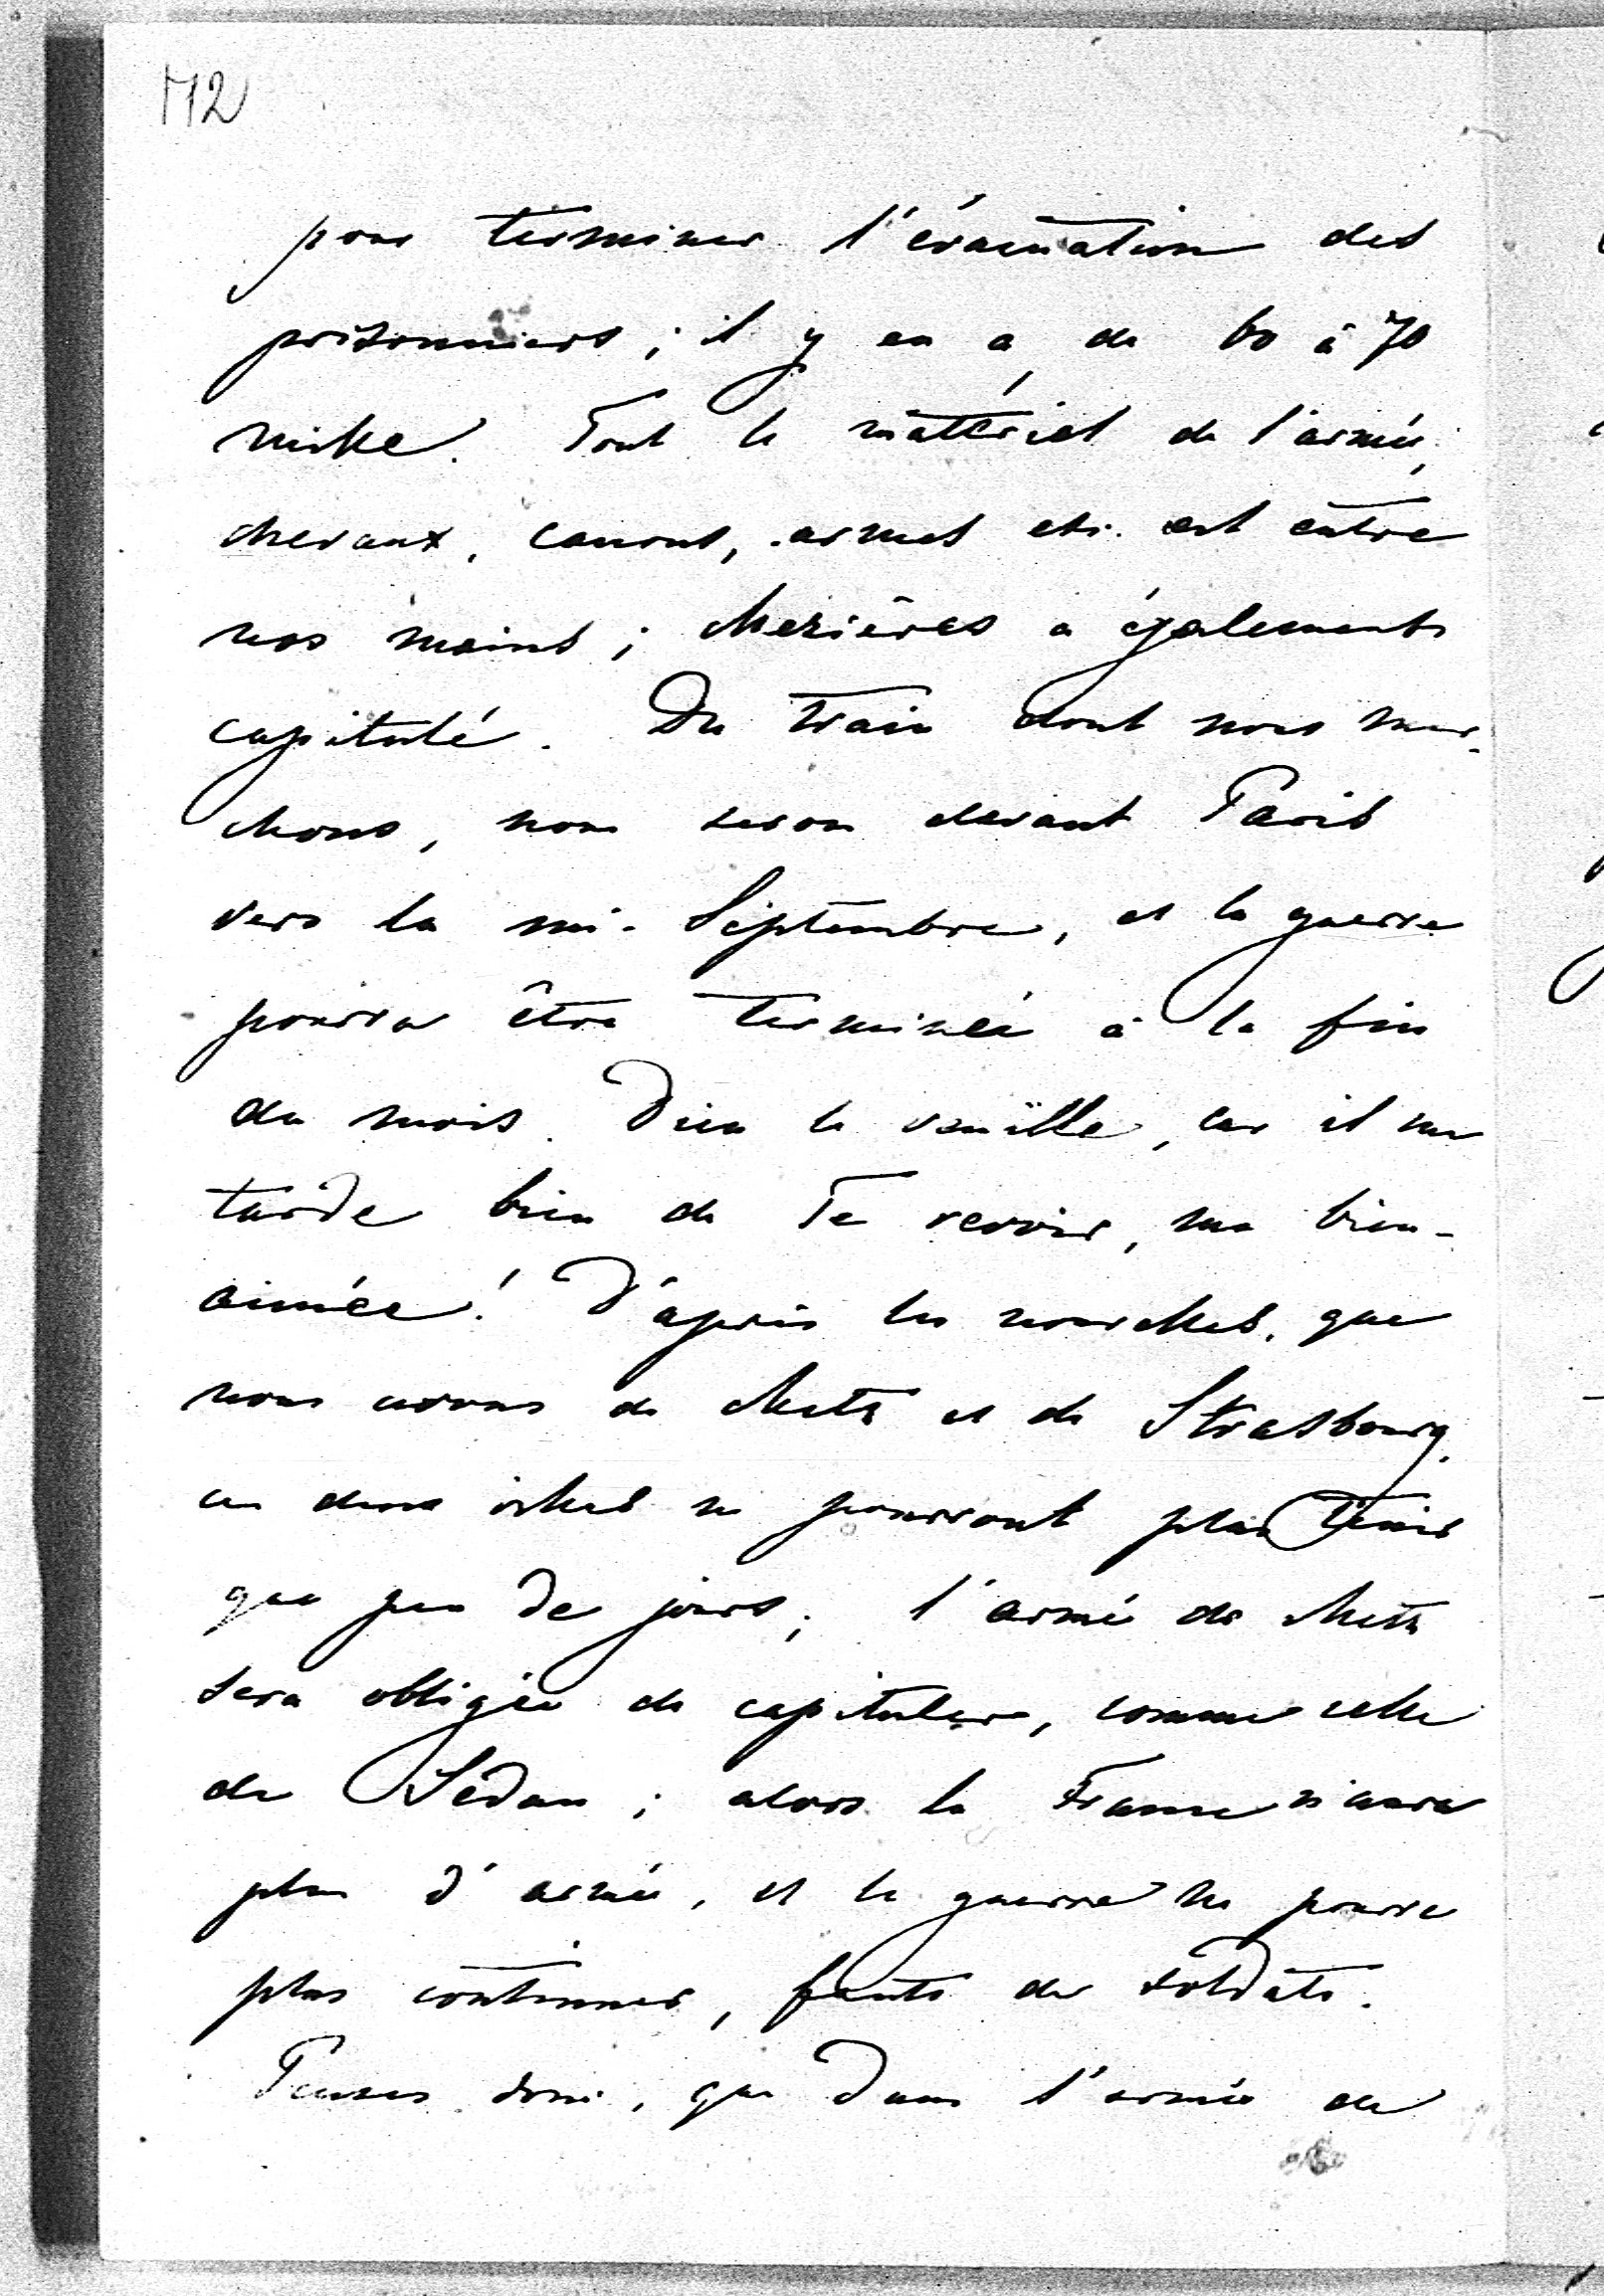 172
pour terminer l'évacuation des
prisonniers ; il y en a de 60 à 70
mille. Tout le matériel de l'armée,
chevaux, canons, armes etc. est entre
nos mains ; Mezières a également
capitulé. Du train dont nous mar-
chons, nous seron devant Paris
vers la mi-Septembre, et la guerre
pourra être terminée à la fin
du mois. Dieu le veuille, car il me
tarde bien de Te revoir, ma bien-
aimée ! D'après les nouvelles, que
nous avons de Metz et de Strasbourg,
ces deux villes ne pourront plus tenir
que peu de jours ; l'armé de Metz
sera obligée de capituler, comme celle
de Sédan ; alors la France n'aura
plus d'armée, et la guerre ne pourra
plus continuer, faute de soldats.
Penses donc, que dans l'armée de